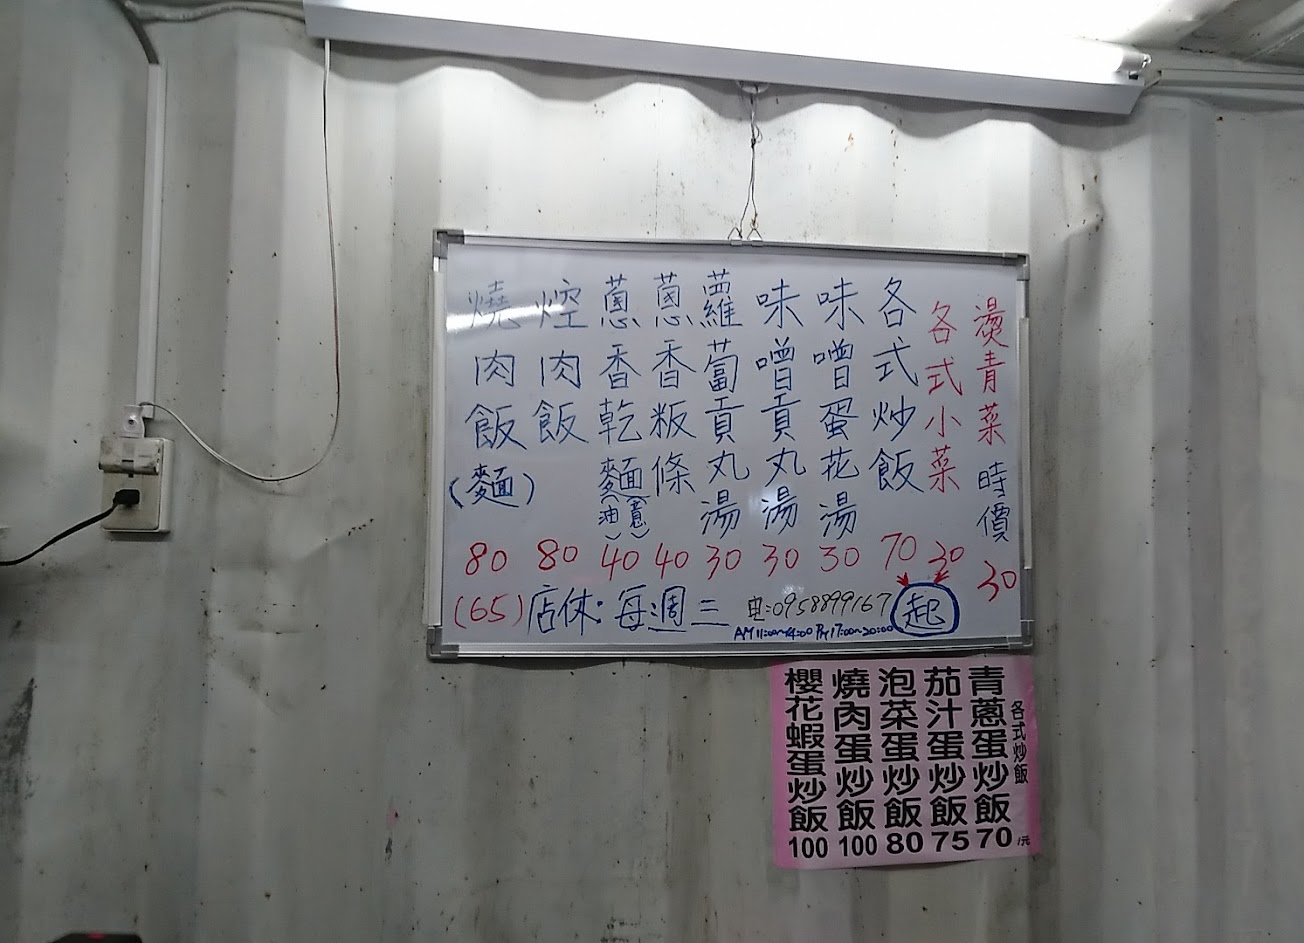 燙青菜 時價 30
各式小菜 30
各式炒飯 70
味噌蛋花湯 30
味噌貢丸湯 30
蘿蔔貢丸湯 30
蔥香粄條 40
蔥香乾麵(油蔥) 40
焢肉飯 80
燒肉飯(麵) 80
(65)
起
店休:每週三
电:0958899167
AM11:00~14:00 PM17:00~20:00
各式炒飯
青蔥蛋炒飯 70/元
茄汁蛋炒飯 75
泡菜蛋炒飯 80
燒肉蛋炒飯 100
櫻花蝦蛋炒飯 100